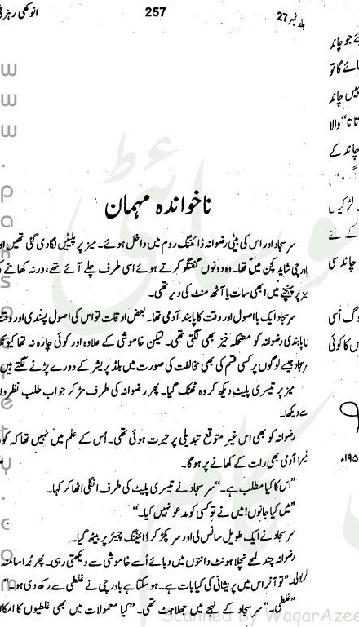 انوکھی رہزنی
257
جلد نمبر 27
ناخواندہ مہمان
سر سجاد اور اس کی بیٹی رضوانہ ڈائننگ روم میں داخل ہوئے۔ میز پر پلیٹیں لگا دی گئی تھیں اور
باورچی شاید کچن میں تھا۔ وہ دونوں گفتگو کرتے ہوئے اسی طرف چلے آئے تھے، ورنہ کھانے کی
میز پر پہنچنے میں ابھی سات یا آٹھ منٹ کی دیر تھی۔
سر سجاد ایک بااصول اور وقت کا پابند آدمی تھا۔ بعض اوقات تو اس کی اصول پسندی اور
پابندی رضوانہ کو مضحکہ خیز بھی لگتی تھی۔ لیکن خاموشی کے علاوہ اور کوئی چارہ نہ تھا
سجاد جیسے لوگوں پر کسی قسم کی بھی مخالفت کی صورت میں بلڈ پریشر کے دورے پڑنے لگتے ہیں
میز پر تیسری پلیٹ دیکھ کر وہ ٹھٹک گیا۔ پھر رضوانہ کی طرف مڑ کر جواب طلب نظروں
سے دیکھا۔
رضوانہ کو بھی اس غیر متوقع تبدیلی پر حیرت ہوئی تھی۔ اُس کے علم میں نہیں تھا کہ
آدمی بھی رات کے کھانے پر ہو گا۔
"اس کا کیا مطلب ہے۔" سر سجاد نے تیسری پلیٹ کی طرف انگلی اٹھا کر کہا۔
"میں کیا جانوں! میں نے تو کسی کو مدعو نہیں کیا۔"
سر سجاد نے ایک طویل سانس لی اور سر پکڑ کر ڈائننگ چیئر پر بیٹھ گیا۔
رضوانہ چند لمحے نچلا ہونٹ دانتوں میں دبائے اُسے خاموشی سے دیکھتی رہی۔ پھر
بولی۔ "تو آخر اس میں پریشانی کی کیا بات ہے۔ ہو سکتا ہے باورچی نے غلطی سے رکھ دی ہو۔"
"غلطی۔" سر سجاد کے لہجے میں جھلاہٹ تھی۔ "کیا معمولات میں بھی غلطیوں کا امکان
Scanned By WaqarAzee